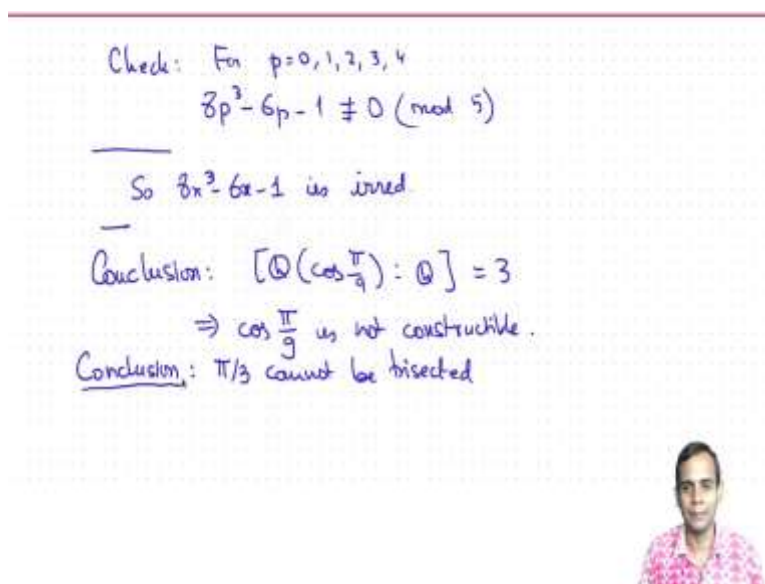 Check: For p=0,1,2,3,4
8p³-6p-1 ≢ 0 (mod 5)
So 8x³-6x-1 is irred.
Conclusion: [ℚ(cos π/9) : ℚ] = 3
⇒ cos π/9 is not constructible.
Conclusion: π/3 cannot be trisected